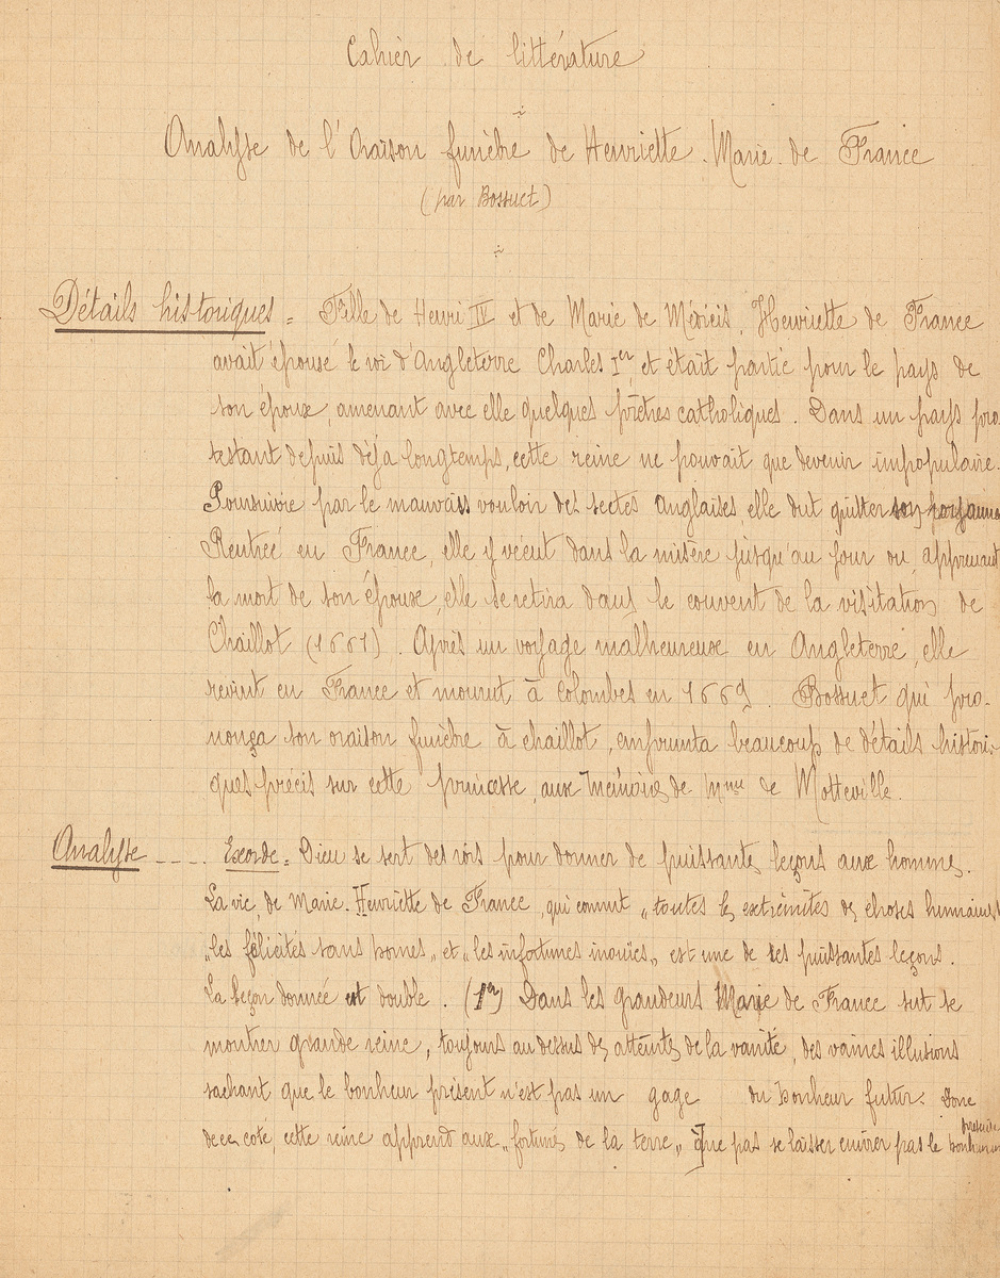 Cahier de littérature
Analyse de l'Oraison funèbre de Henriette-Marie de France
(par Bossuet)
Détails historiques = Fille de Henri IV et de Marie de Médicis, Henriette de France
avait épousé le roi d'Angleterre Charles Ier, et était partie pour le pays de
son époux, amenant avec elle quelques prêtres catholiques. Dans un pays pro
testant depuis déjà longtemps, cette reine ne pouvait que devenir impopulaire.
Poursuivie par le mauvais vouloir des sectes Anglaises elle dut quitter son royaume
Rentrée en France, elle y vécut dans la misère jusqu'au jour ou, apprenant
la mort de son époux, elle se retira dans le couvent de la visitation de
Chaillot (1661). Après un voyage malheureux en Angleterre, elle
revint en France et mourut à Colombes en 1669. Bossuet qui pro-
nonça son oraison funèbre à chaillot, emprunta beaucoup de détails histori-
ques précis sur cette princesse, aux Mémoires de Mme de Motteville.
Analyse ---- Exorde = Dieu se sert des rois pour donner de puissantes leçons aux hommes.
La vie de Marie-Henriette de France, qui connut "toutes les extrémités des choses humaines
"les félicités sans bornes" et "les infortunes inouïes" est une de ces puissantes leçons.
La leçon donnée est double. (1er) Dans les grandeurs Marie de France sut se
montrer grande reine, toujours au dessus des atteintes de la vanité, des vaines illusions
sachant que le bonheur présent n'est pas un gage du bonheur futur. Donc
de ce coté, cette reine apprend aux "fortunés de la terre" que pas se laisser enivrer pas le bonheur